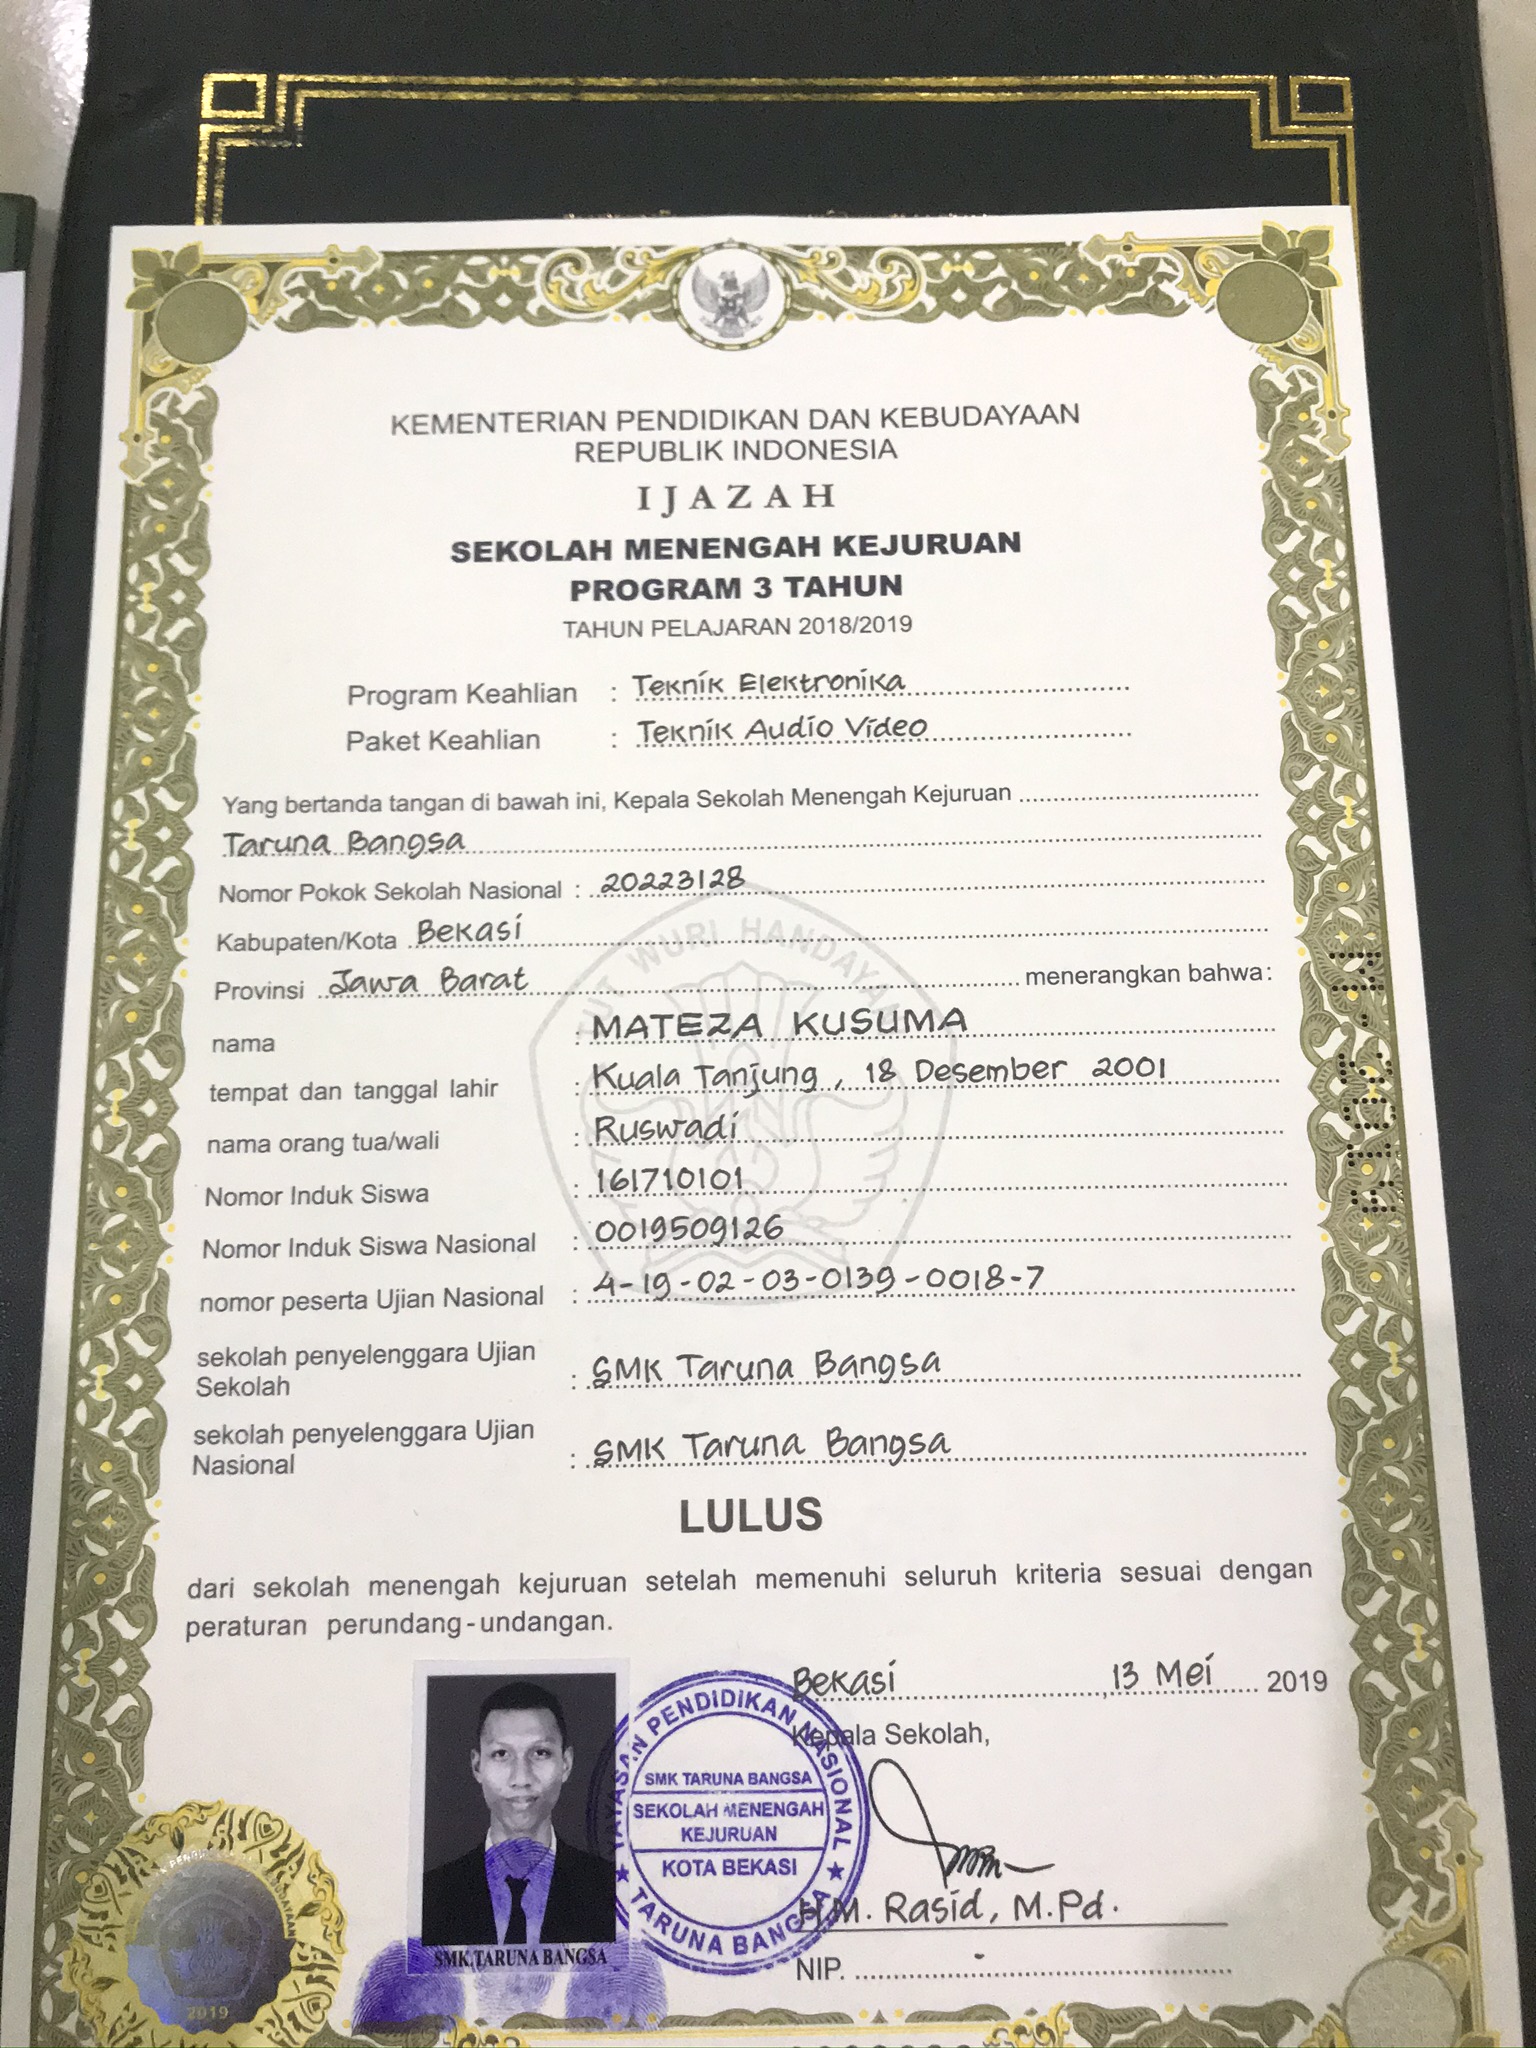 KEMENTERIAN PENDIDIKAN DAN KEBUDAYAAN
REPUBLIK INDONESIA
IJAZAH
SEKOLAH MENENGAH KEJURUAN
PROGRAM 3 TAHUN
TAHUN PELAJARAN 2018/2019
Program Keahlian : Teknik Elektronika
Paket Keahlian : Teknik Audio Video
Yang bertanda tangan di bawah ini, Kepala Sekolah Menengah Kejuruan
Taruna Bangsa
Nomor Pokok Sekolah Nasional : 20223128
Kabupaten/Kota Bekasi
Provinsi Jawa Barat menerangkan bahwa:
nama : MATEZA KUSUMA
tempat dan tanggal lahir : Kuala Tanjung, 18 Desember 2001
nama orang tua/wali : Ruswadi
Nomor Induk Siswa : 161710101
Nomor Induk Siswa Nasional : 0019509126
nomor peserta Ujian Nasional : 4-19-02-03-0139-0018-7
sekolah penyelenggara Ujian
Sekolah : SMK Taruna Bangsa
sekolah penyelenggara Ujian
Nasional : SMK Taruna Bangsa
LULUS
dari sekolah menengah kejuruan setelah memenuhi seluruh kriteria sesuai dengan
peraturan perundang-undangan.
Bekasi, 13 Mei 2019
Kepala Sekolah,
H.M. Rasid, M.Pd.
NIP.
YAYASAN PENDIDIKAN NASIONAL
SMK TARUNA BANGSA
SEKOLAH MENENGAH
KEJURUAN
KOTA BEKASI
TARUNA BANGSA
SMK.TARUNA BANGSA
TUT WURI HANDAYANI
2019